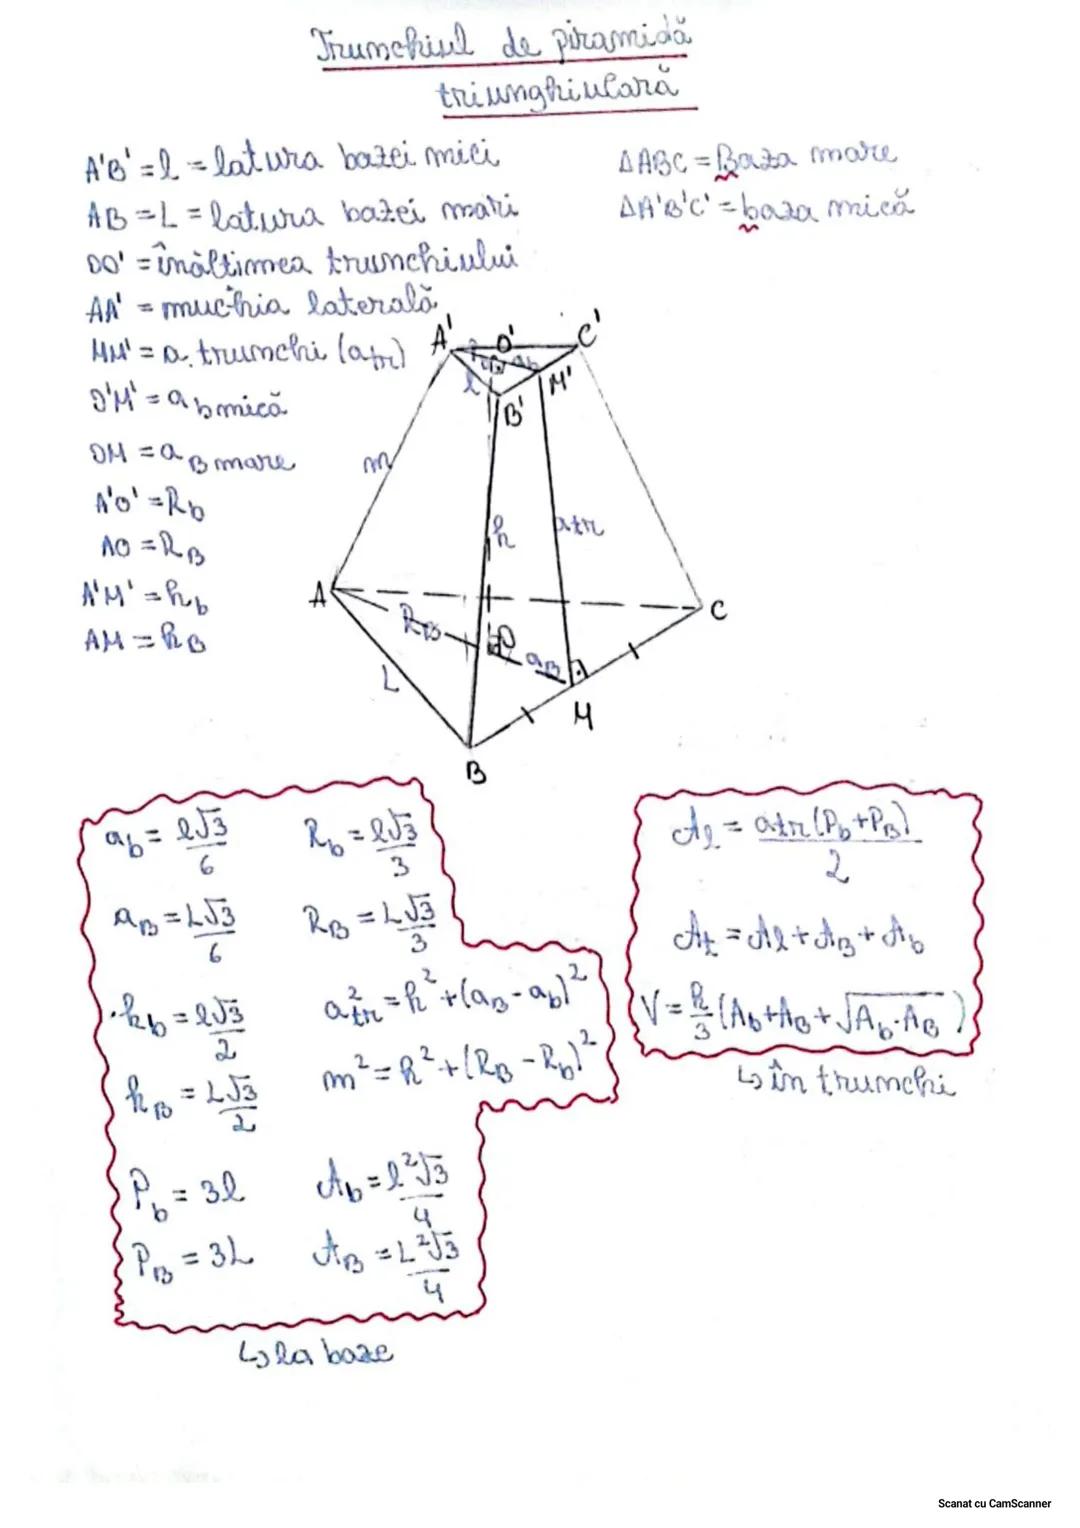 Trunchiul de piramidă
triunghiulară
A'B' = l = latura bazei mici
AB = L = latura bazei mari
OO' = înălțimea trunchiului
AA' = muchia laterală
MM' = a. trunchi (atr)
O'M' = a b mică
OM = a B mare
A'O' = Rb
AO = RB
A'M' = hb
AM = hB
ΔABC = Baza mare
ΔA'B'C' = baza mică
A' O' C'
l ab M'
B'
m
h atr
A C
RB O aB
L
M
B
ab = l√3/6 Rb = l√3/3
aB = L√3/6 RB = L√3/3
hb = l√3/2 atr² = h² + (aB - ab)²
hB = L√3/2 m² = h² + (RB - Rb)²
Pb = 3l Ab = l²√3/4
PB = 3L AB = L²√3/4
↳ la baze
Al = atr(Pb + PB)/2
At = Al + AB + Ab
V = h/3 (Ab + AB + √Ab·AB)
↳ în trunchi
Scanat cu CamScanner